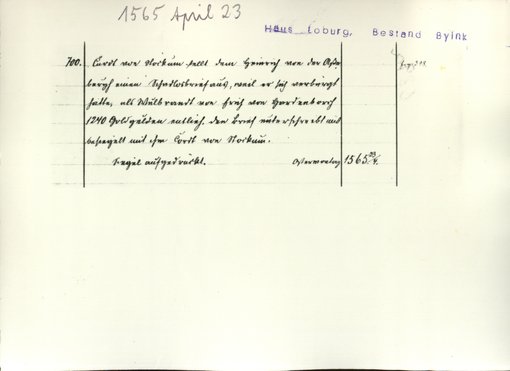 1565 April 23
Haus Loburg, Bestand Byink
700. Cordt von Stockum stellt dem Heinrich von der
bergh einen Schadlosbrief aus, weil er sich verbürgt
hatte, als Wulbrandt von von Hardenborch
1240 Goldgulden entlieh. den Brief unterschreibt und
besiegelt mit ihm Cordt von Stockum.
Siegel aufgedrückt. Ostermontag 1565 23/4.